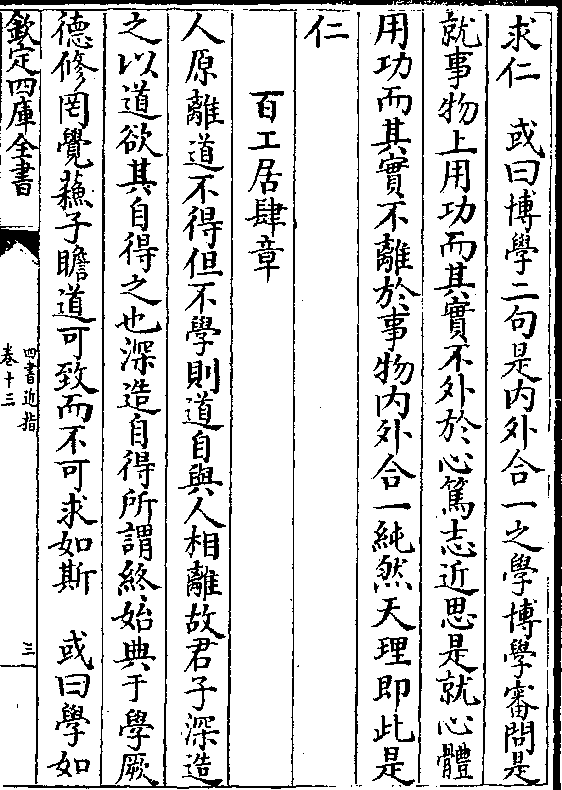 求仁　或曰博學二句是内外合一之學博學審問是
就事物上用功而其實不外於心篤志近思是就心體
用功而其實不離於事物内外合一純然天理即此是
仁
百工居肆章
人原離道不得但不學則道自與人相離故君子深造
之以道欲其自得之也深造自得所謂終始典于學厥
德修罔覺蘓子瞻道可致而不可求如斯　或曰學如
欽定四庫全書
四書近指
卷十三
三